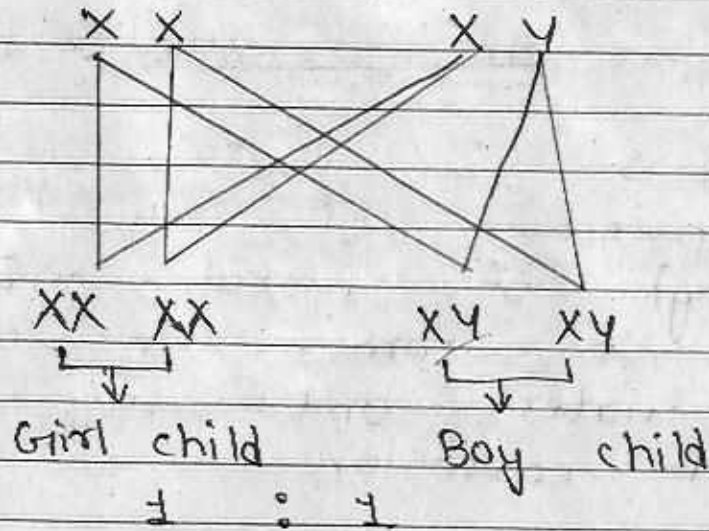 X X X Y
XX XX XY XY
Girl child Boy child
1 : 1